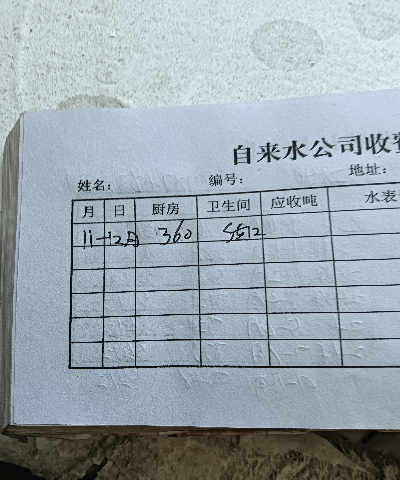 自来水公司收费
姓名： 编号： 地址：
月 日 厨房 卫生间 应收吨 水表
11-12月 360 5512